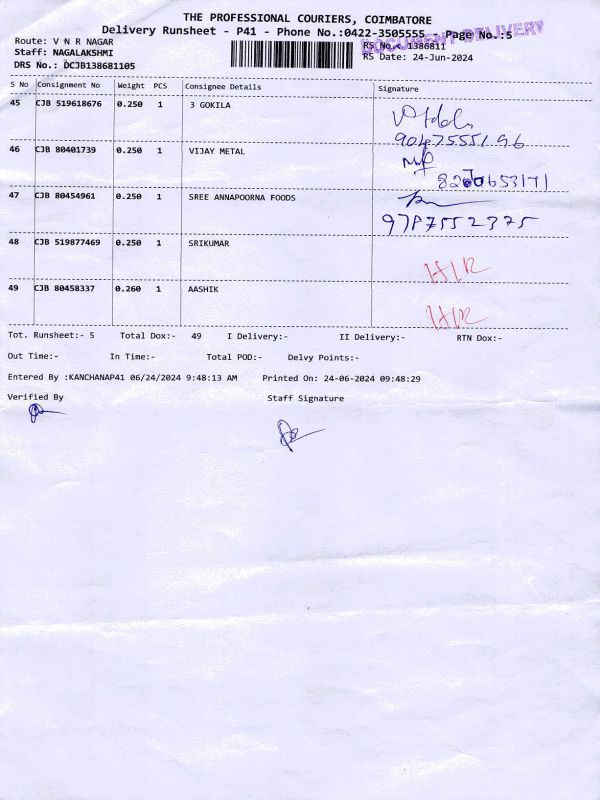 THE PROFESSIONAL COURIERS, COIMBATORE
Delivery Runsheet - P41 - Phone No.:0422-3505555 - Page No.:5
DOCUMENT DELIVERY
Route: V N R NAGAR
RS No.: 1386811
Staff: NAGALAKSHMI
RS Date: 24-Jun-2024
DRS No.: DCJB138681105
S No Consignment No Weight PCS Consignee Details Signature
45 CJB 519618676 0.250 1 3 GOKILA
9047555196
46 CJB 80401739 0.250 1 VIJAY METAL
47 CJB 80454961 0.250 1 SREE ANNAPOORNA FOODS
9787552375
48 CJB 519877469 0.250 1 SRIKUMAR
49 CJB 80458337 0.260 1 AASHIK
Tot. Runsheet:- 5 Total Dox:- 49 I Delivery:- II Delivery:- RTN Dox:-
Out Time:- In Time:- Total POD:- Delvy Points:-
Entered By :KANCHANAP41 06/24/2024 9:48:13 AM Printed On: 24-06-2024 09:48:29
Verified By Staff Signature